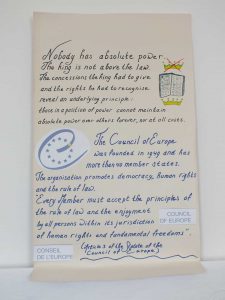 Nobody has absolute power.
The king is not above the law.
The concessions the king had to give
and the rights he had to recognise
reveal an underlying principle:
those in a position of power cannot maintain
absolute power over others forever, or at all costs.
The Council of Europe
was founded in 1949 and has
more than 40 member states.
The organisation promotes democracy, human rights
and the rule of law.
"Every Member must accept the principles of
the rule of law and the enjoyment
by all persons within its jurisdiction
of human rights and fundamental freedoms".
of the
Council of Europe)
CONSEIL
DE L'EUROPE
COUNCIL
OF EUROPE